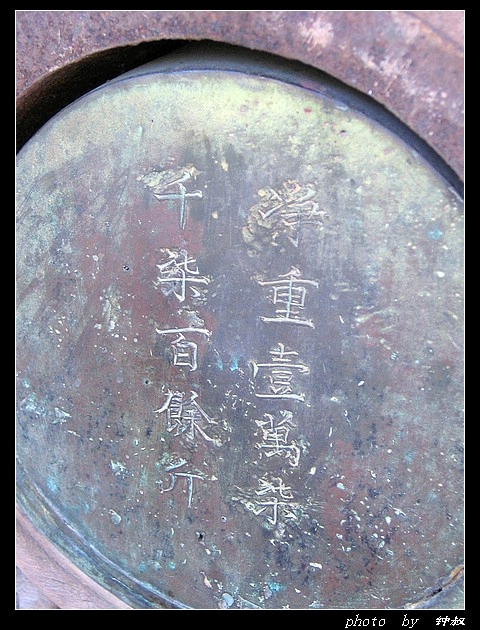 淨重壹萬柒
千柒百餘斤
photo by 钟叔